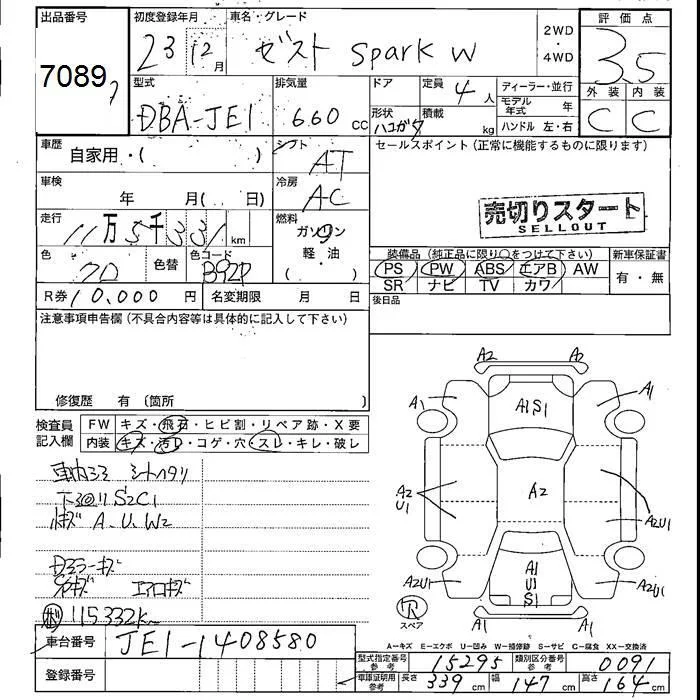 出品番号 初度登録年月 車名・グレード 評価点
7089 23 12月 ゼスト spark W 2WD・4WD 3.5
型式 排気量 ドア 定員 ディーラー・並行 外装 内装
DBA-JE1 660 cc 4人 モデル年式 年 C C
形状 ハコガタ 積載 kg ハンドル 左・右
車歴 自家用・( ) シフト AT セールスポイント (正常に機能するものに限ります)
車検 年 月( 日) 冷房 AC
売切りスタート
SELLOUT
走行 11万5千331km 燃料 ガソリン 軽・油 ( )
色 色替 色コード 装備品 (純正品に限り○をつけて下さい) 新車保証書
PS PW ABS エアB AW 有・無
SR ナビ TV カワ
R券 10,000円 名変期限 月 日 後日品
注意事項申告欄 (不具合内容等は具体的に記入して下さい)
修復歴 有 〔箇所 〕
検査員記入欄 FW キズ・飛石・ヒビ割・リペア跡・X要
内装 キズ・汚レ・コゲ・穴・スレ・キレ・破レ
シートヘタリ
S2C1
A.U.W2
エアロキズ
115332k
A2 A2
A1 A1S1 A1
A2U1 A2 A2U1
A2U1 A1U1S1 A2U1
R スペア A1 A1
A-キズ E-エクボ U-凹み W-補修跡 S-サビ C-腐食 XX-交換済
車台番号 JE1-1408580
登録番号
型式指定番号参考 15295 類別区分番号参考 0091
車庫証明用参考 長さ 339cm 幅 147cm 高さ 164cm